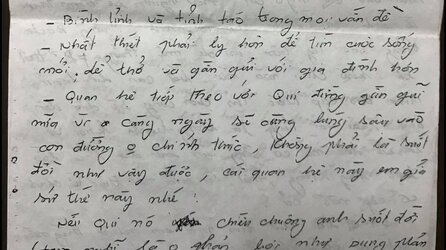 - Bình tỉnh và tỉnh táo trong mọi vấn đề
- Nhất thiết phải ly hôn để tìm cuộc sống
mới. để thở và gần gũi với gia đình hơn
- Quan hệ tiếp theo với Quí đừng gần gũi
nữa vì a càng ngày sẽ càng lún sâu vào
con đường o chính thức, không phải là suốt
đời như vậy được, cái quan hệ này em giả
sử thế này nhé:
Nếu Quí nó chiều chuộng anh suốt đời